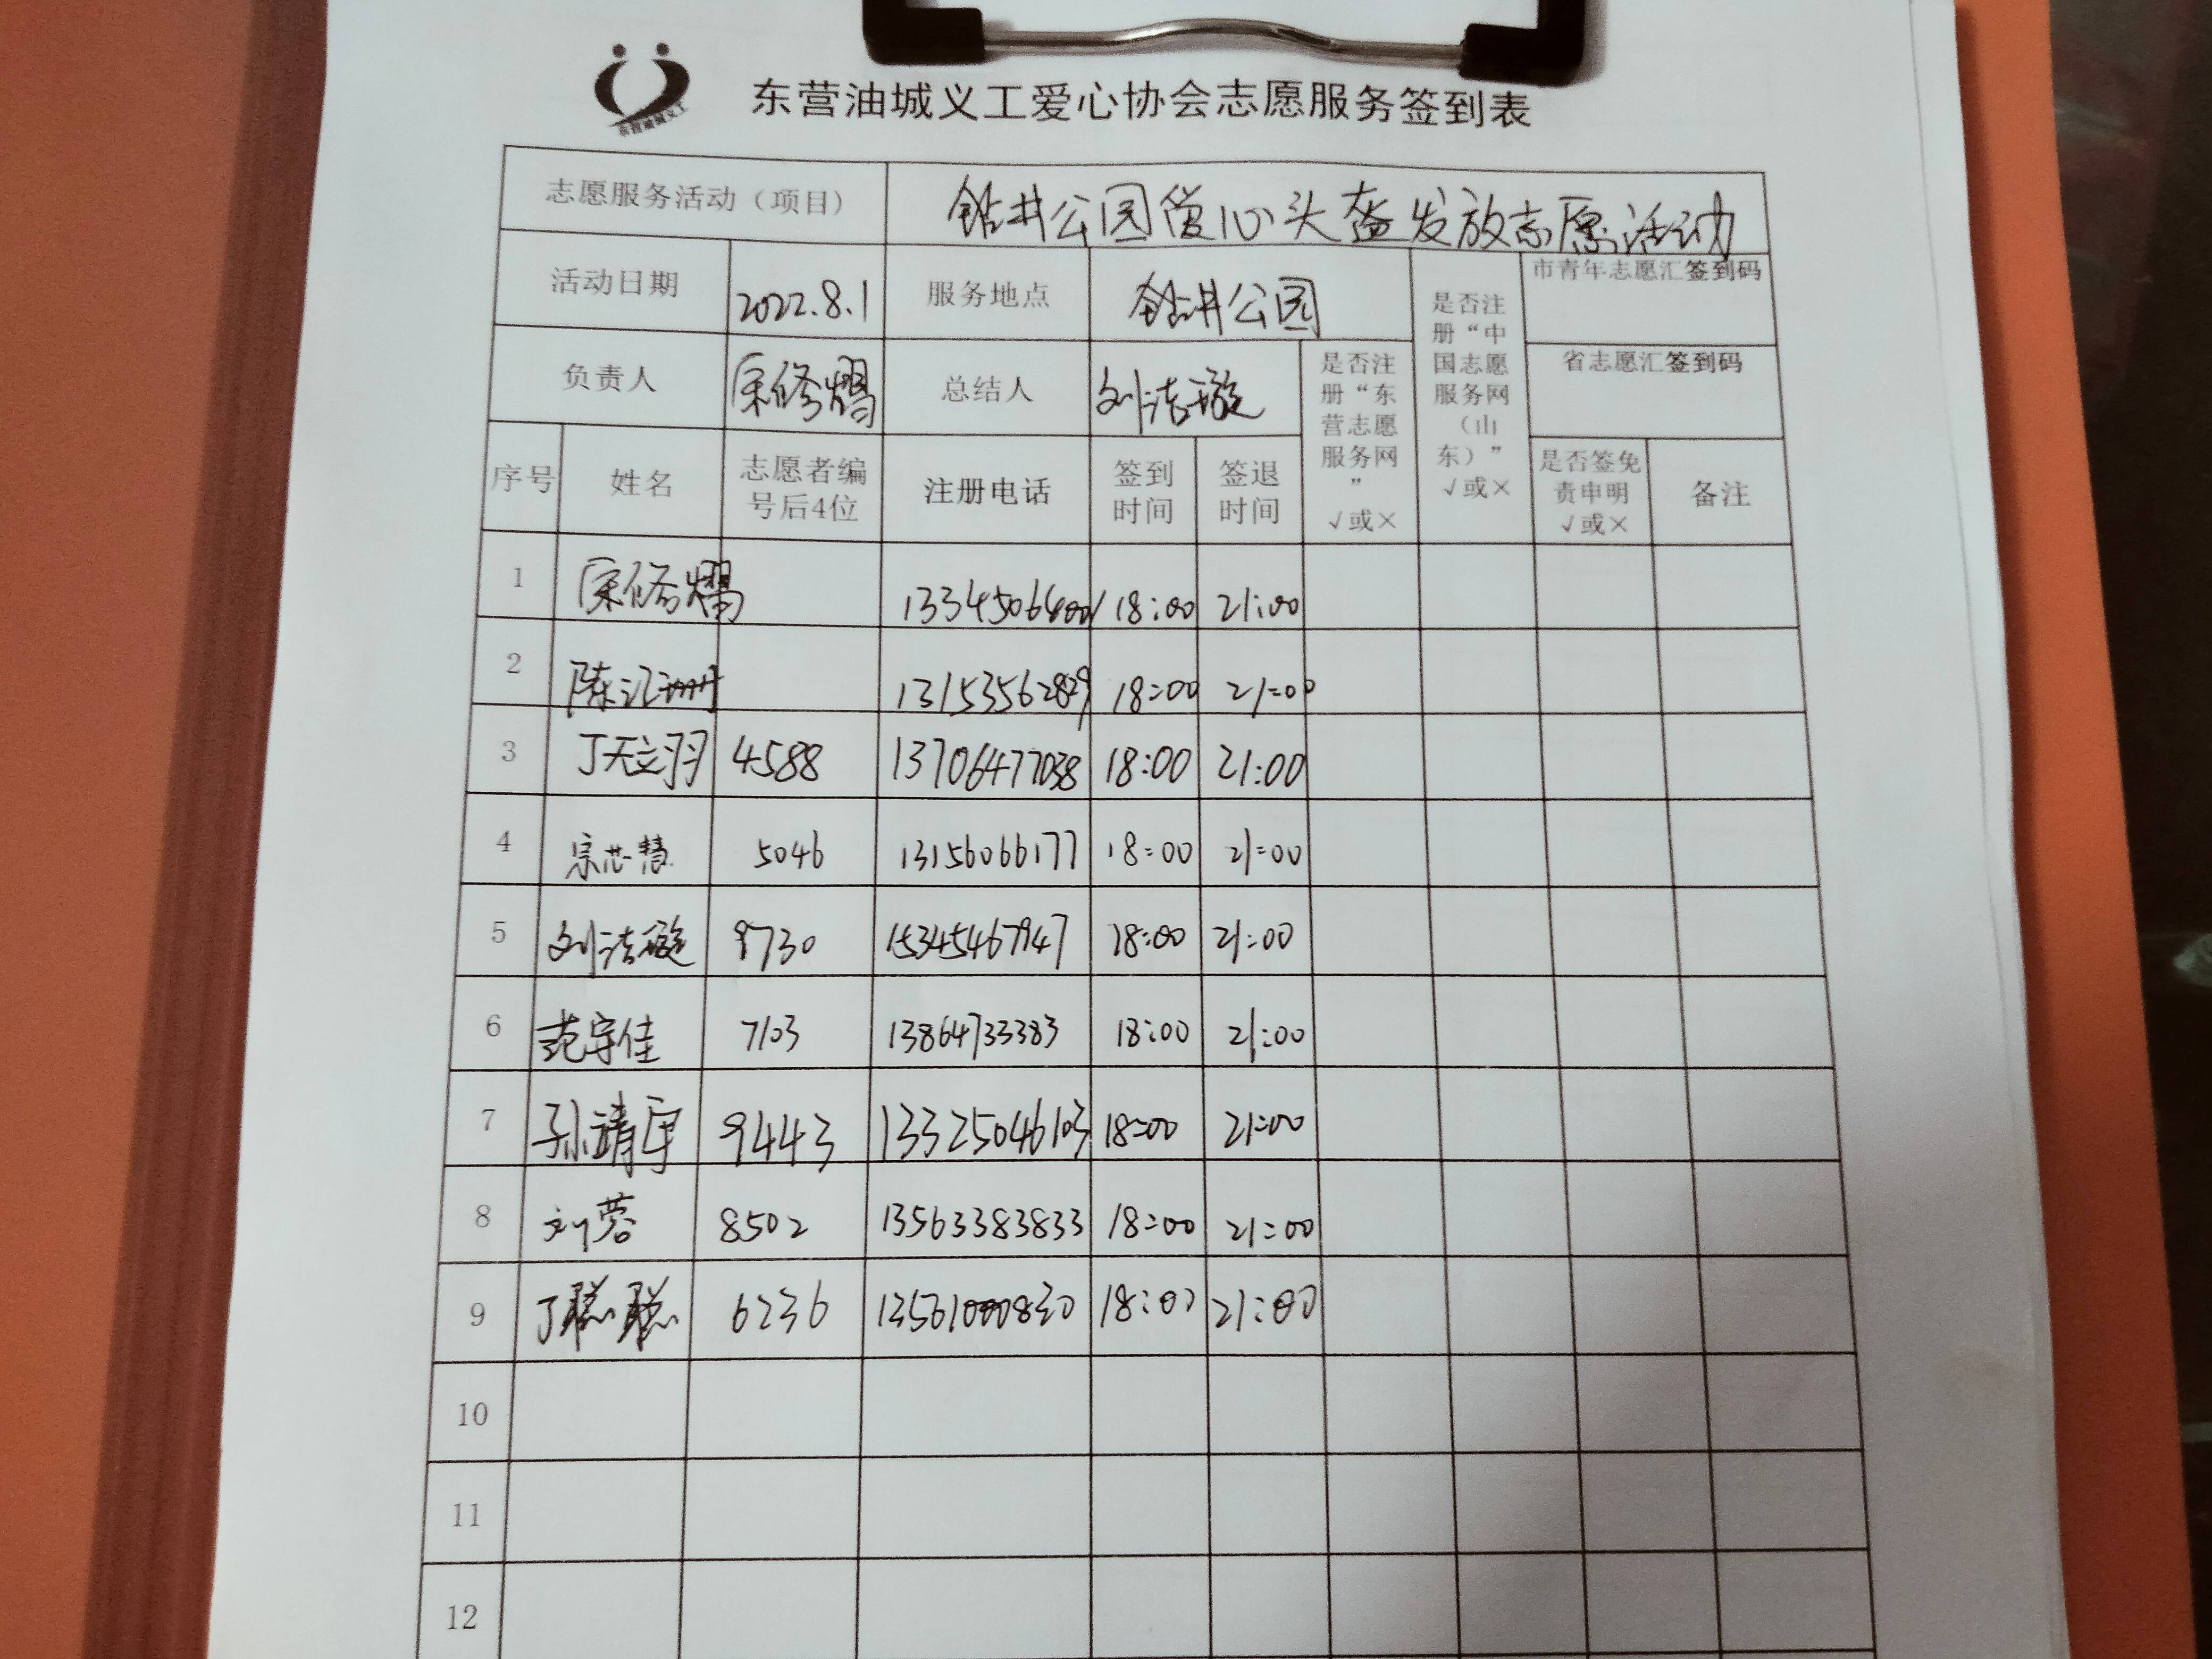 东营油城义工
东营油城义工爱心协会志愿服务签到表
志愿服务活动（项目） 钻井公园爱心头盔发放志愿活动
活动日期 2022.8.1 服务地点 钻井公园 是否注册“中国志愿服务网（山东）” √或× 市青年志愿汇签到码
负责人 宋修熠 总结人 刘洁璇 是否注册“东营志愿服务网” √或× 省志愿汇签到码
序号 姓名 志愿者编号后4位 注册电话 签到时间 签退时间 是否签免责申明 √或× 备注
1 宋修熠 18:00 21:00
2 陈汇珊 18:00 21:00
3 丁天翊 4588 13706477038 18:00 21:00
4 宗芯慧 5046 13156066177 18:00 21:00
5 刘洁璇 9730 15345467947 18:00 21:00
6 范宇佳 7103 13864733383 18:00 21:00
7 孙靖宇 9443 13325046103 18:00 21:00
8 刘蓉 8502 13563383833 18:00 21:00
9 丁聪聪 6236 18:00 21:00
10
11
12